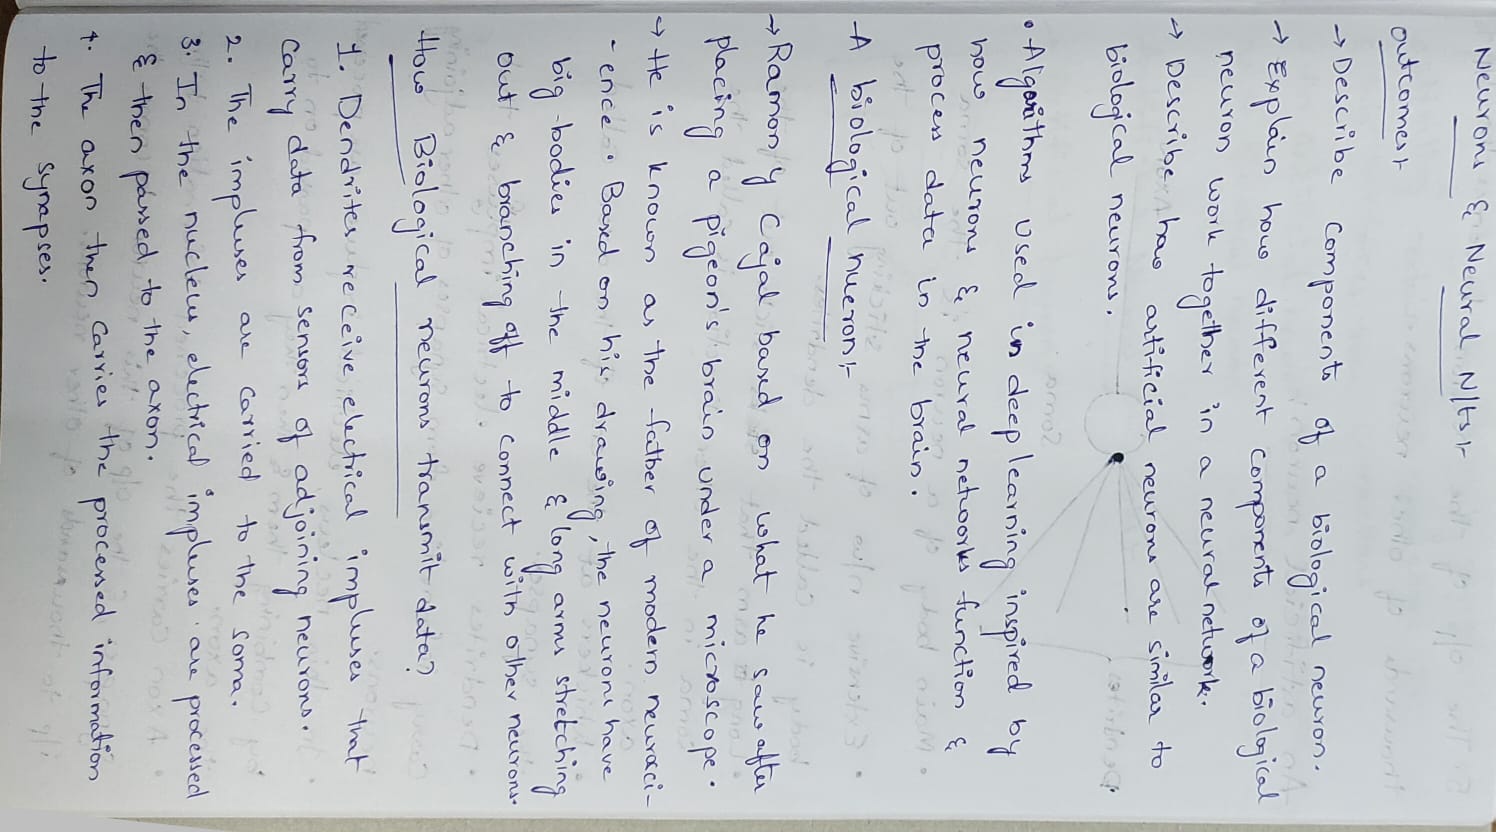 Neurons & Neural N/ts:-
outcomes:-
→ Describe components of a biological neuron.
→ Explain how different components of a biological
neuron work together in a neural network.
→ Describe how artificial neurons are similar to
biological neurons.
• Algorithms used in deep learning inspired by
how neurons & neural networks function &
process data in the brain.
A biological nueron:-
→ Ramon y Cajal based on what he saw after
placing a pigeon's brain under a microscope.
→ He is known as the father of modern neurosci-
-ence. Based on his drawing, the neurons have
big bodies in the middle & long arms stretching
out & branching off to connect with other neurons.
How Biological neurons transmit data?
1. Dendrites receive electrical impluses that
carry data from sensors of adjoining neurons.
2. The impluses are carried to the soma.
3. In the nucleus, electrical impluses are processed
& then passed to the axon.
4. The axon then carries the processed information
to the synapses.